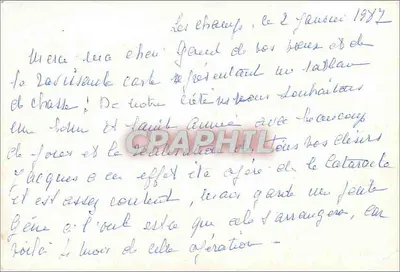 Les champs, le 2 Janvier 1987
Merci ma chère de vos vœux et de
la ravissante carte représentant un tableau
de chasse! De notre côté nous souhaitons
une bonne et sainte année avec beaucoup
de joies et la de tous vos désirs
Jacques a en effet été opéré de la cataracte
il est assez content, mais garde une petite
gêne à l'œil que cela s'arrangera, car
voici le mois de cette opération -
CPAPHIL